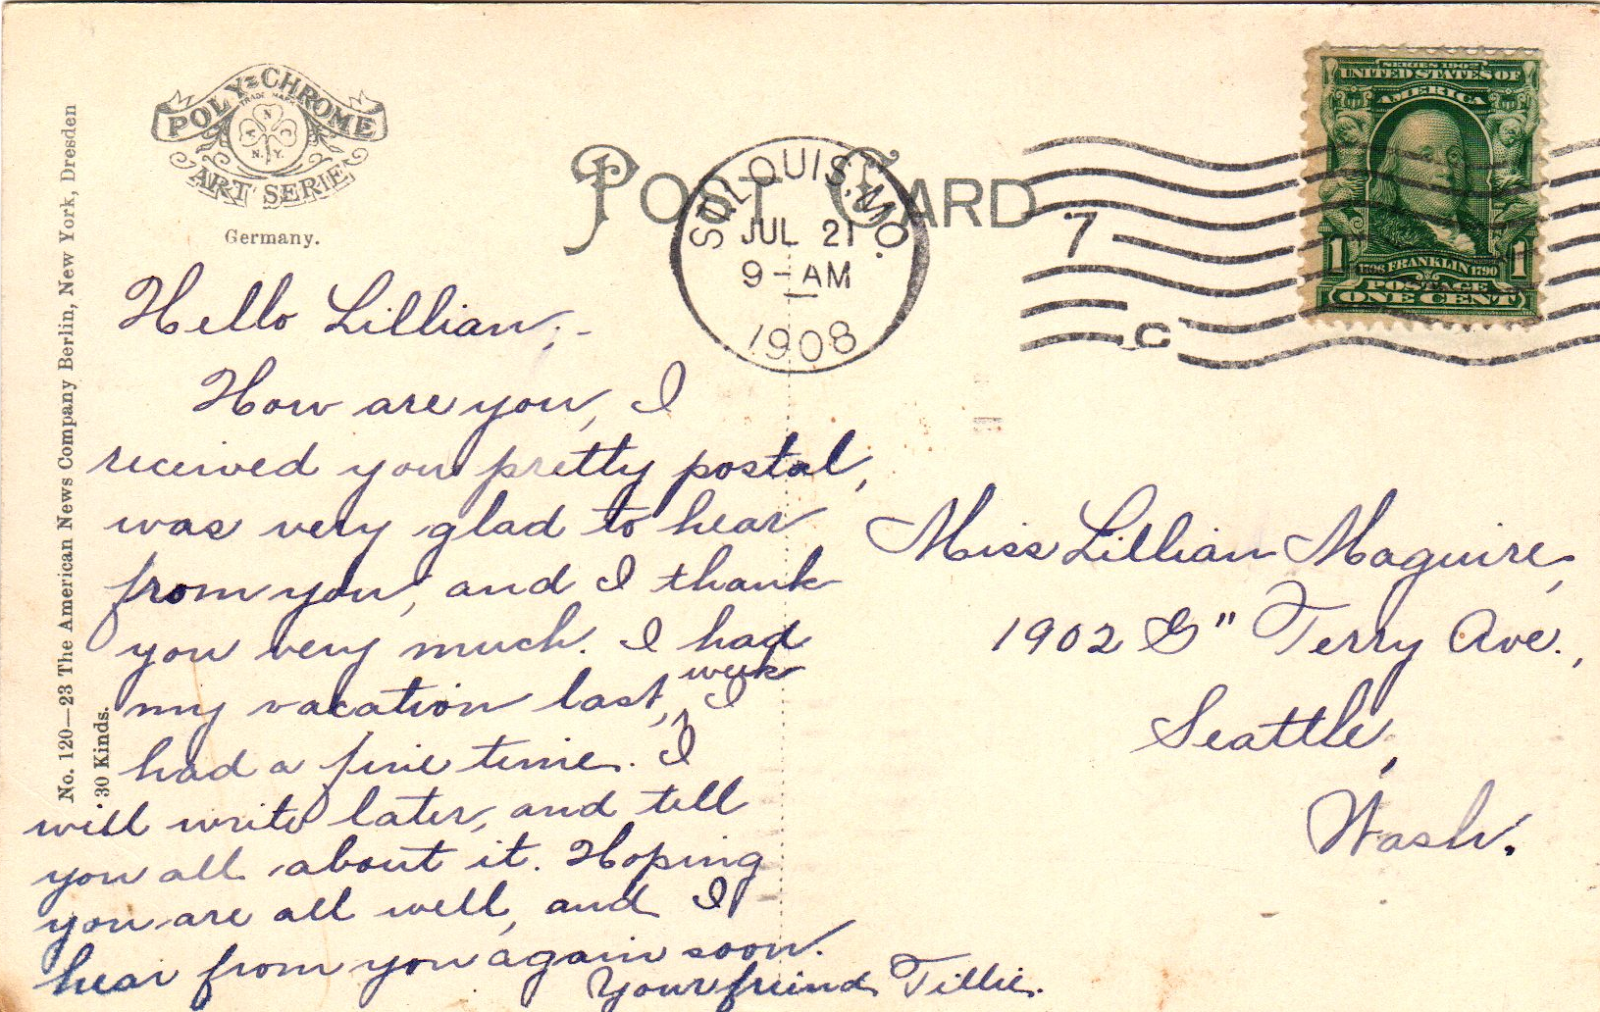 POLY-CHROME
TRADE MARK
A N C
N.Y.
ART SERIE
Germany.
No. 120—23 The American News Company Berlin, New York, Dresden
30 Kinds.
POST CARD
ST. LOUIS, MO.
JUL 21
9-AM
1908
7
C
SERIES 1902
UNITED STATES OF
AMERICA
1 1
1706 FRANKLIN 1790
POSTAGE
ONE CENT
Hello Lillian;-
How are you, I
received you pretty postal,
was very glad to hear
from you, and I thank
you very much. I had
my vacation last week, I
had a fine time. I
will write later, and tell
you all about it. Hoping
you are all well, and I
hear from you again soon.
Your friend Tillie.
Miss Lillian Maguire,
1902 G" Terry Ave.,
Seattle,
Wash.